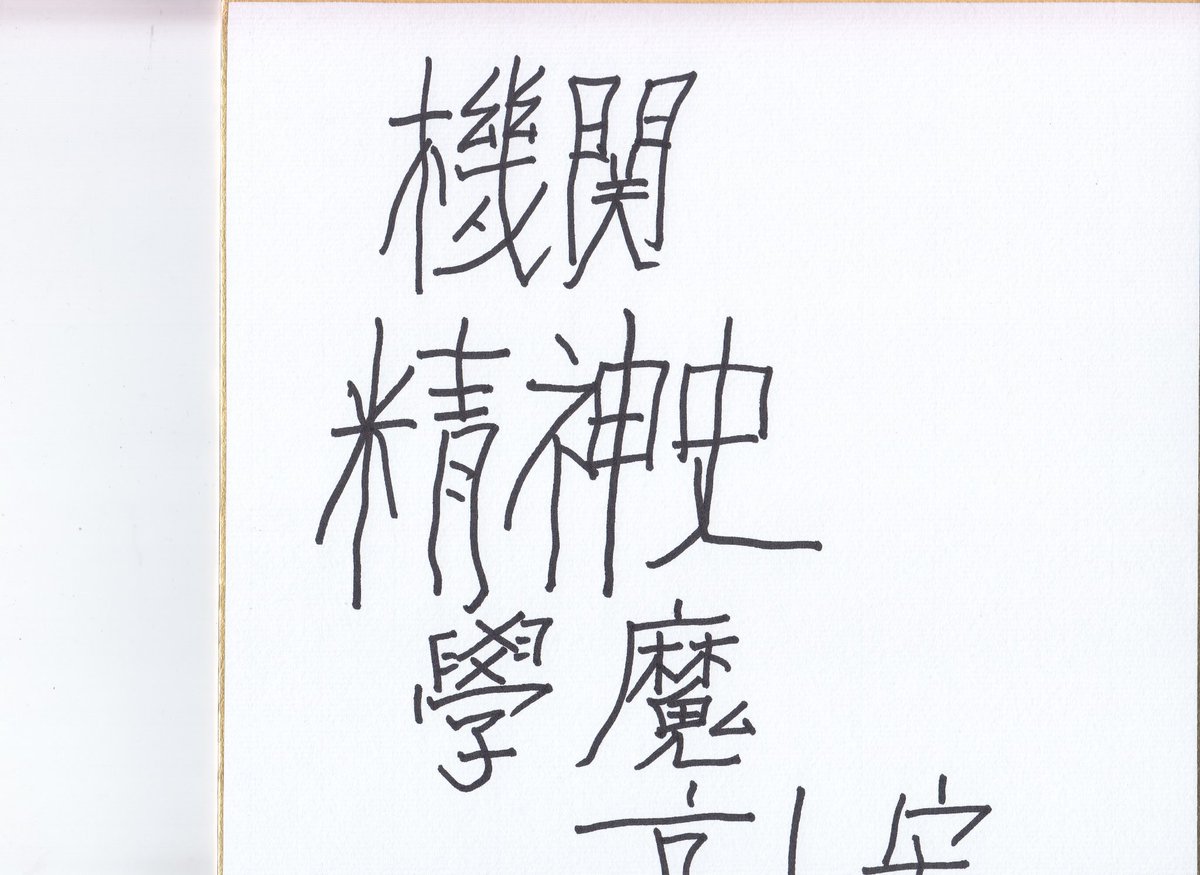 機関
精神史
學魔